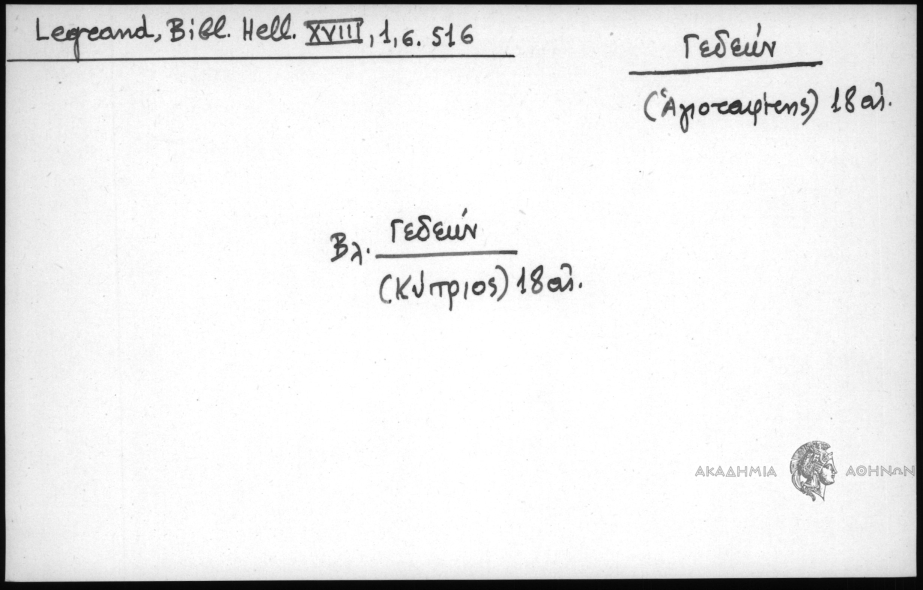 Legrand, Bibl. Hell. XVIII, 1, σ. 516
Γεδεών
(Ἁγιοταφίτης) 18 αἰ.
Βλ. Γεδεών
(Κύπριος) 18 αἰ.
ΑΚΑΔΗΜΙΑ ΑΘΗΝΩΝ